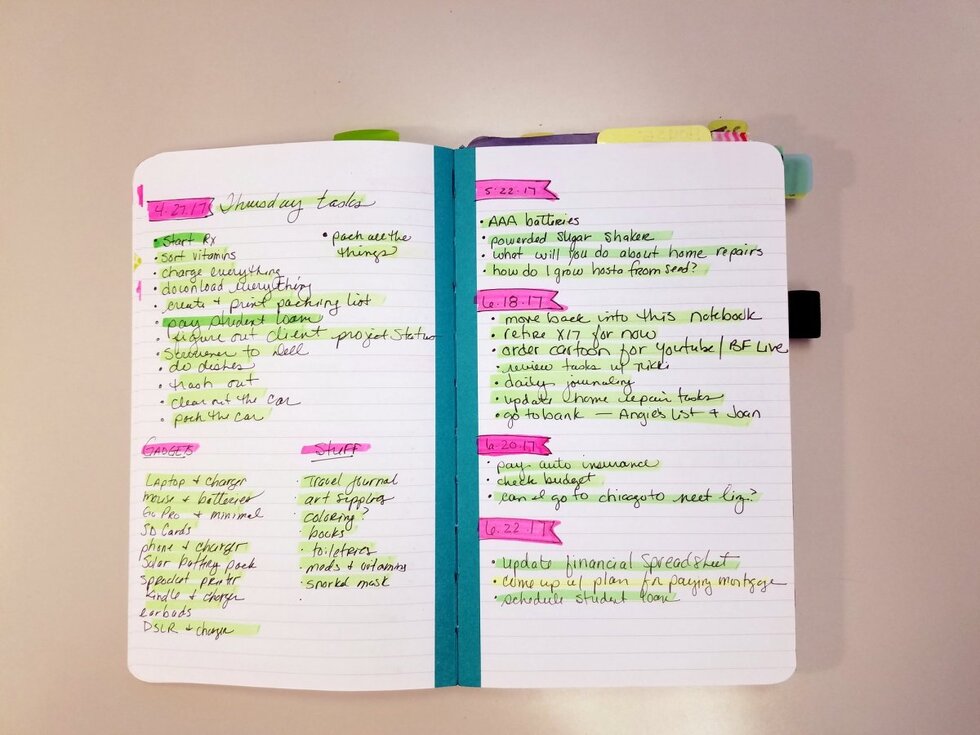 4.27.17 Thursday tasks
• Start Rx
• sort vitamins
• charge everything
• download everything
• create + print packing list
• pay student loan
• figure out client project status
• Scrivener to Dell
• do dishes
• trash out
• clear out the car
• pack the car
• pack all the
things
GADGETS
LAPTOP + charger
mouse + batteries
Go PRO + minimal
SD Cards
phone + charger
Solar battery pack
sprocket printer
Kindle + charger
earbuds
DSLR + charger
STUFF
• Travel Journal
• art supplies
• coloring?
• books
• toiletries
• meds + vitamins
• snorkel mask
•
5.22.17
• AAA batteries
• powdered sugar shaker
• what will you do about home repairs
• how do I grow hosta from seed?
6.18.17
• move back into this notebook
• retire X17 for now
• order cartoon for Youtube/BF Live
• review tasks w/ nikki
• daily journaling
• update home repair tasks
• go to bank — Angie's List + Joan
6.20.17
• pay auto insurance
• check budget
• can I go to chicago to meet Liz?
6.22.17
• update financial spreadsheet
• come up w/ plan for paying mortgage
• schedule student loan